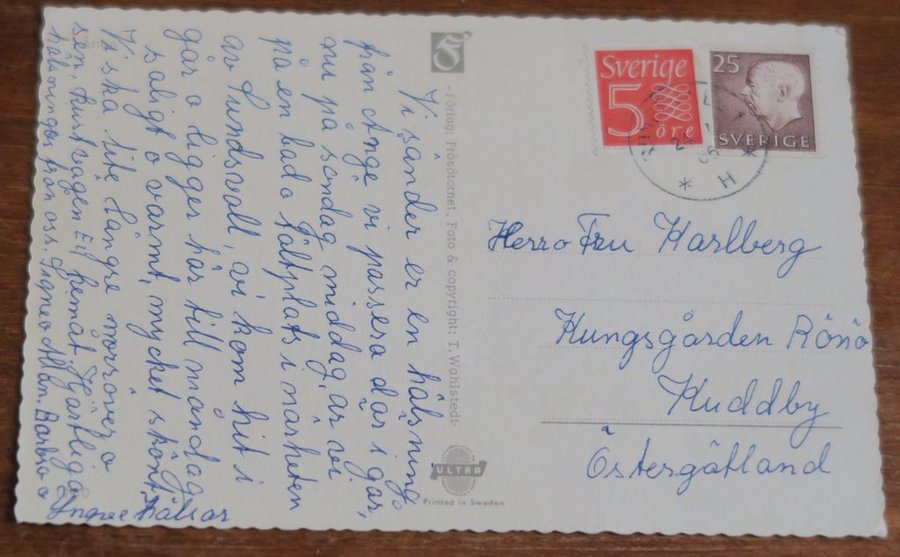 Vi sänder er en hälsning
från Ånge vi passera där igår,
nu på söndag middag, är vi
på en bad o tältplats i närheten
av Sundsvall, vi kom hit i
går o ligger här till måndag
saligt o varmt, mycket skönt,
Vi ska lite längre norröver o
sen, kust vägen E4 hemåt. Hjärtliga
hälsningar från oss. Signe o Allan, Barbro o
Yngve hälsar
-Förlag: Frösötornet. Foto & copyright: T. Wahlstedt-
ULTRA
Printed in Sweden
Sverige
5 öre
25
SVERIGE
H
Herr o Fru Karlberg
Kungsgården Rönö
Kuddby
Östergötland